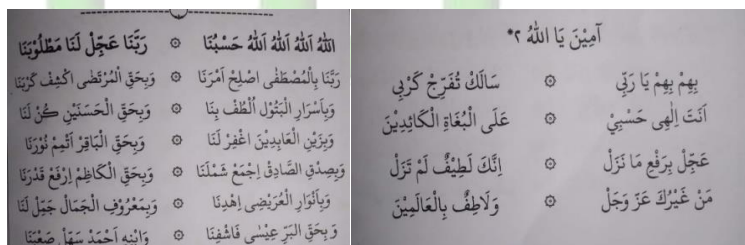 اَللهُ اَللهُ اَللهُ اَللهُ حَسْبُنَا ۞ رَبَّنَا عَجِّلْ لَنَا مَطْلُوْبَنَا
رَبَّنَا بِالْمُصْطَفٰى اصْلِحْ اَمْرَنَا ۞ وَبِحَقِّ الْمُرْتَضٰى اكْشِفْ كَرْبَنَا
وَبِاَسْرَارِ الْبَتُوْلِ اُلْطُفْ بِنَا ۞ وَبِحَقِّ الْحَسَنَيْنِ كُنْ لَنَا
وَبِزَيْنِ الْعَابِدِيْنَ اغْفِرْ لَنَا ۞ وَبِحَقِّ الْبَاقِرْ اَتْمِمْ نُوْرَنَا
وَبِصِدْقِ الصَّادِقْ اِجْمَعْ شَمْلَنَا ۞ وَبِحَقِّ الْكَاظِمْ اِرْفَعْ قَدْرَنَا
وَبِاَنْوَارِ الْعُرَيْضِى اِهْدِنَا ۞ وَبِمَعْرُوْفِ الْجَمَالِ جَمِّلْ لَنَا
وَبِحَقِّ الْبَرِّ عِيْسٰى فَاشْفِنَا ۞ وَابْنِهِ اَحْمَدْ سَهِّلْ صَعْبَنَا
آمِيْنَ يَا اَللهُ ٢*
بِهِمْ بِهِمْ يَا رَبِّى ۞ سَالَكْ تُفَرِّجْ كَرْبِى
اَنْتَ اِلٰهِى حَسْبِيْ ۞ عَلَى الْبُغَاةِ الْكَائِدِيْنَ
عَجِّلْ بِرَفْعِ مَا نَزَلْ ۞ اِنَّكَ لَطِيْفٌ لَمْ تَزَلْ
مَنْ غَيْرُكَ عَزَّ وَجَلْ ۞ وَلَاطِفٌ بِالْعَالَمِيْنَ